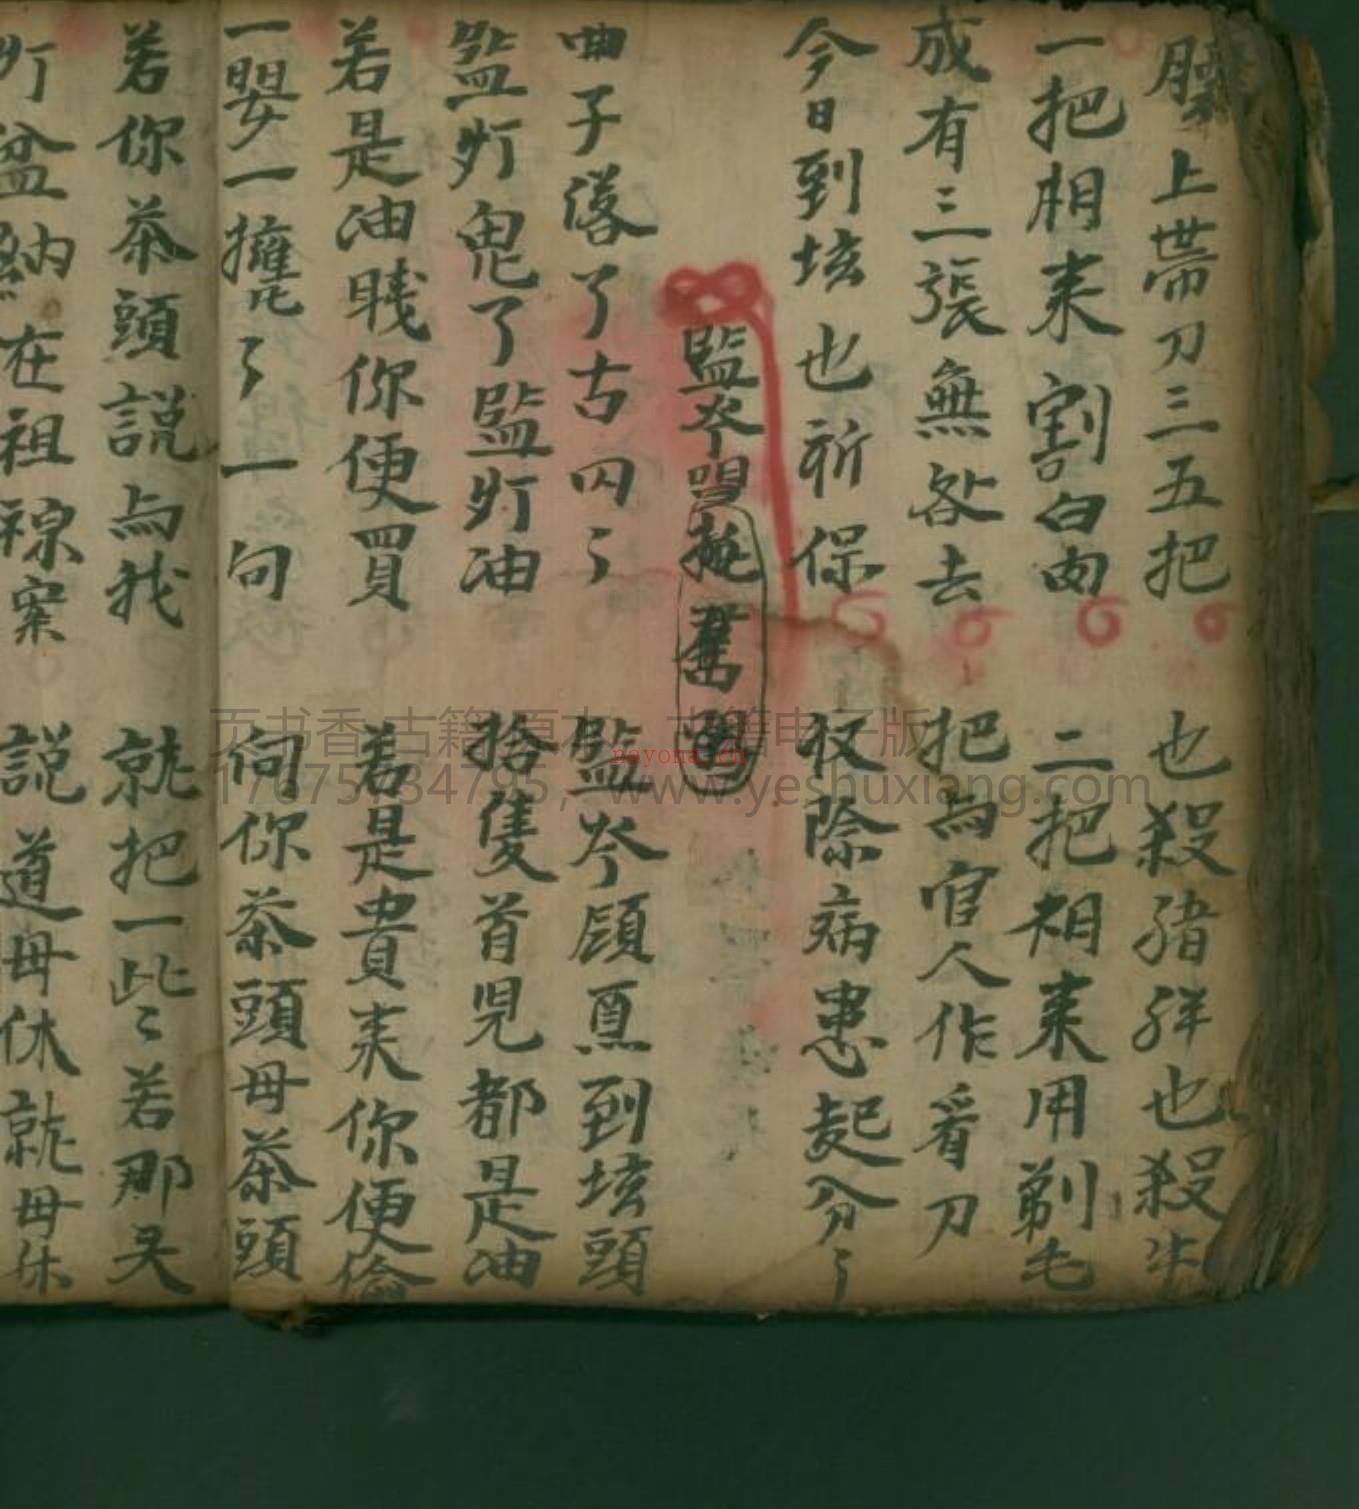 上帶刀三五把 也殺猪羊也殺牛
一把相来割白肉 二把相来用剃毛
成有三張無咎去 把与官人作看刀
今日到坛也祈保 收除病患起分〻
監岑唱
曲子落了古囚〻 監岑頋䭾到坛頭
監灯鬼了監灯油 拾隻首児都是油
若是油賤你便買 若是貴来你便偷
一嬰一擁了一句 伺你茶頭母茶頭
若你茶頭説与我 就把一些〻若那天
灯盆納在祖禄案 説道母休就母休
页书香 古籍 原本，古籍电子版
17075034795，www.yeshuxiang.com
nayona.cn